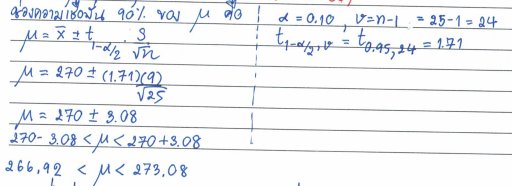 ช่วงความเชื่อมั่น 90% ของ μ คือ
μ = x̄ ± t₁₋α/₂ · S/√n
μ = 270 ± (1.71)(9)/√25
μ = 270 ± 3.08
270 - 3.08 < μ < 270 + 3.08
266.92 < μ < 273.08
α = 0.10 , ν = n-1 = 25-1 = 24
t₁₋α/₂,ν = t₀.₉₅,₂₄ = 1.71